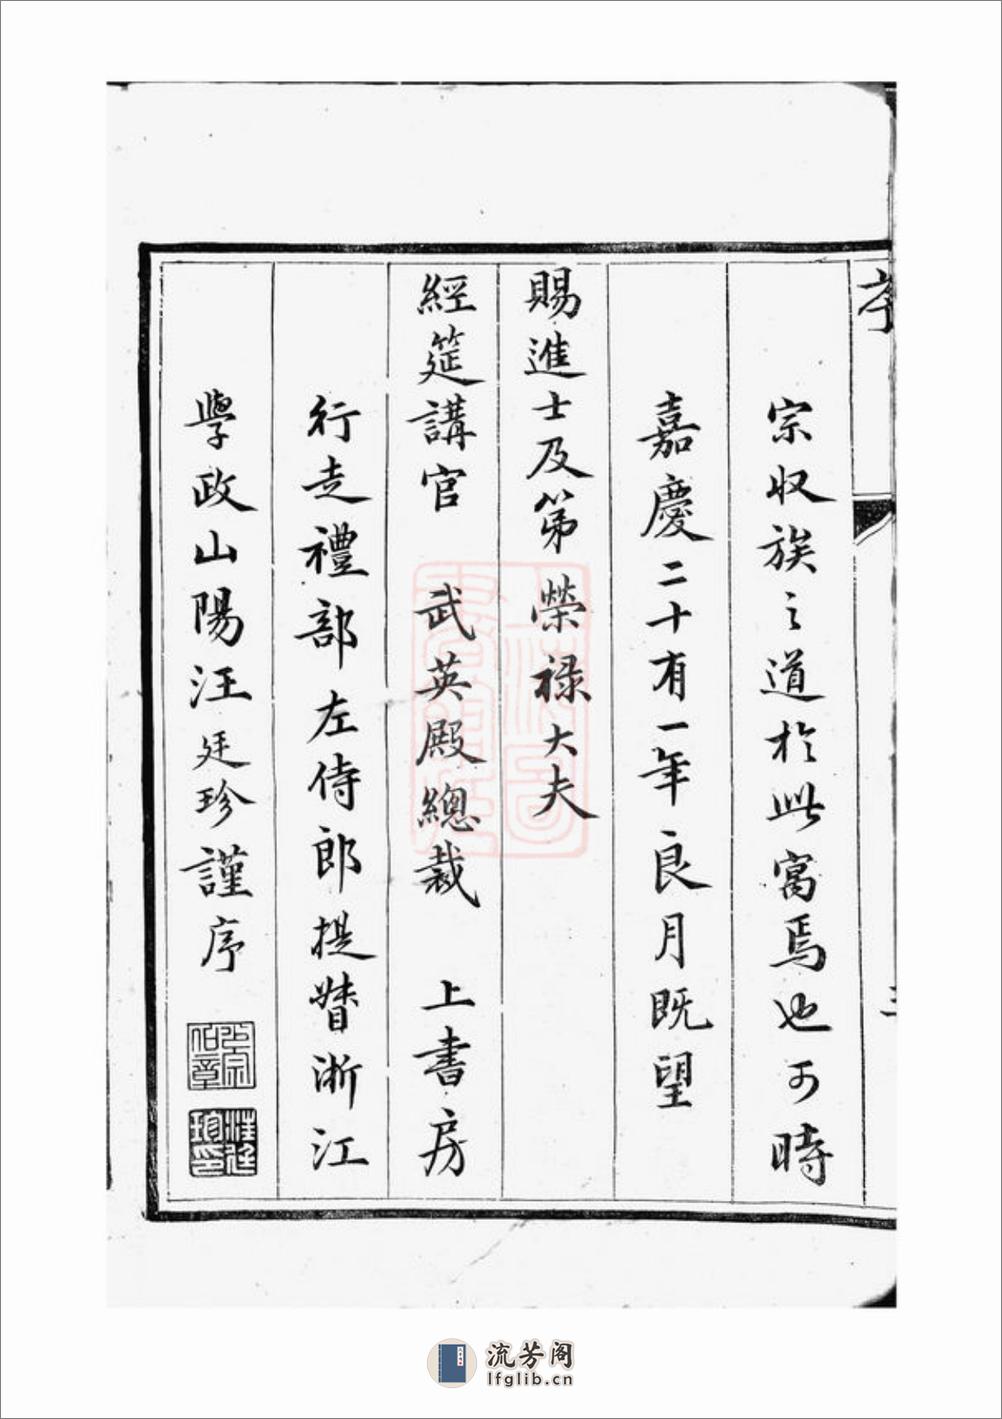 序
宗収族之道於此寓焉也可時
嘉慶二十有一年良月既望
賜進士及第榮祿大夫
經筵講官　武英殿總裁　上書房
行走禮部左侍郎提督浙江
學政山陽汪廷珍謹序
流芳阁
lfglib.cn